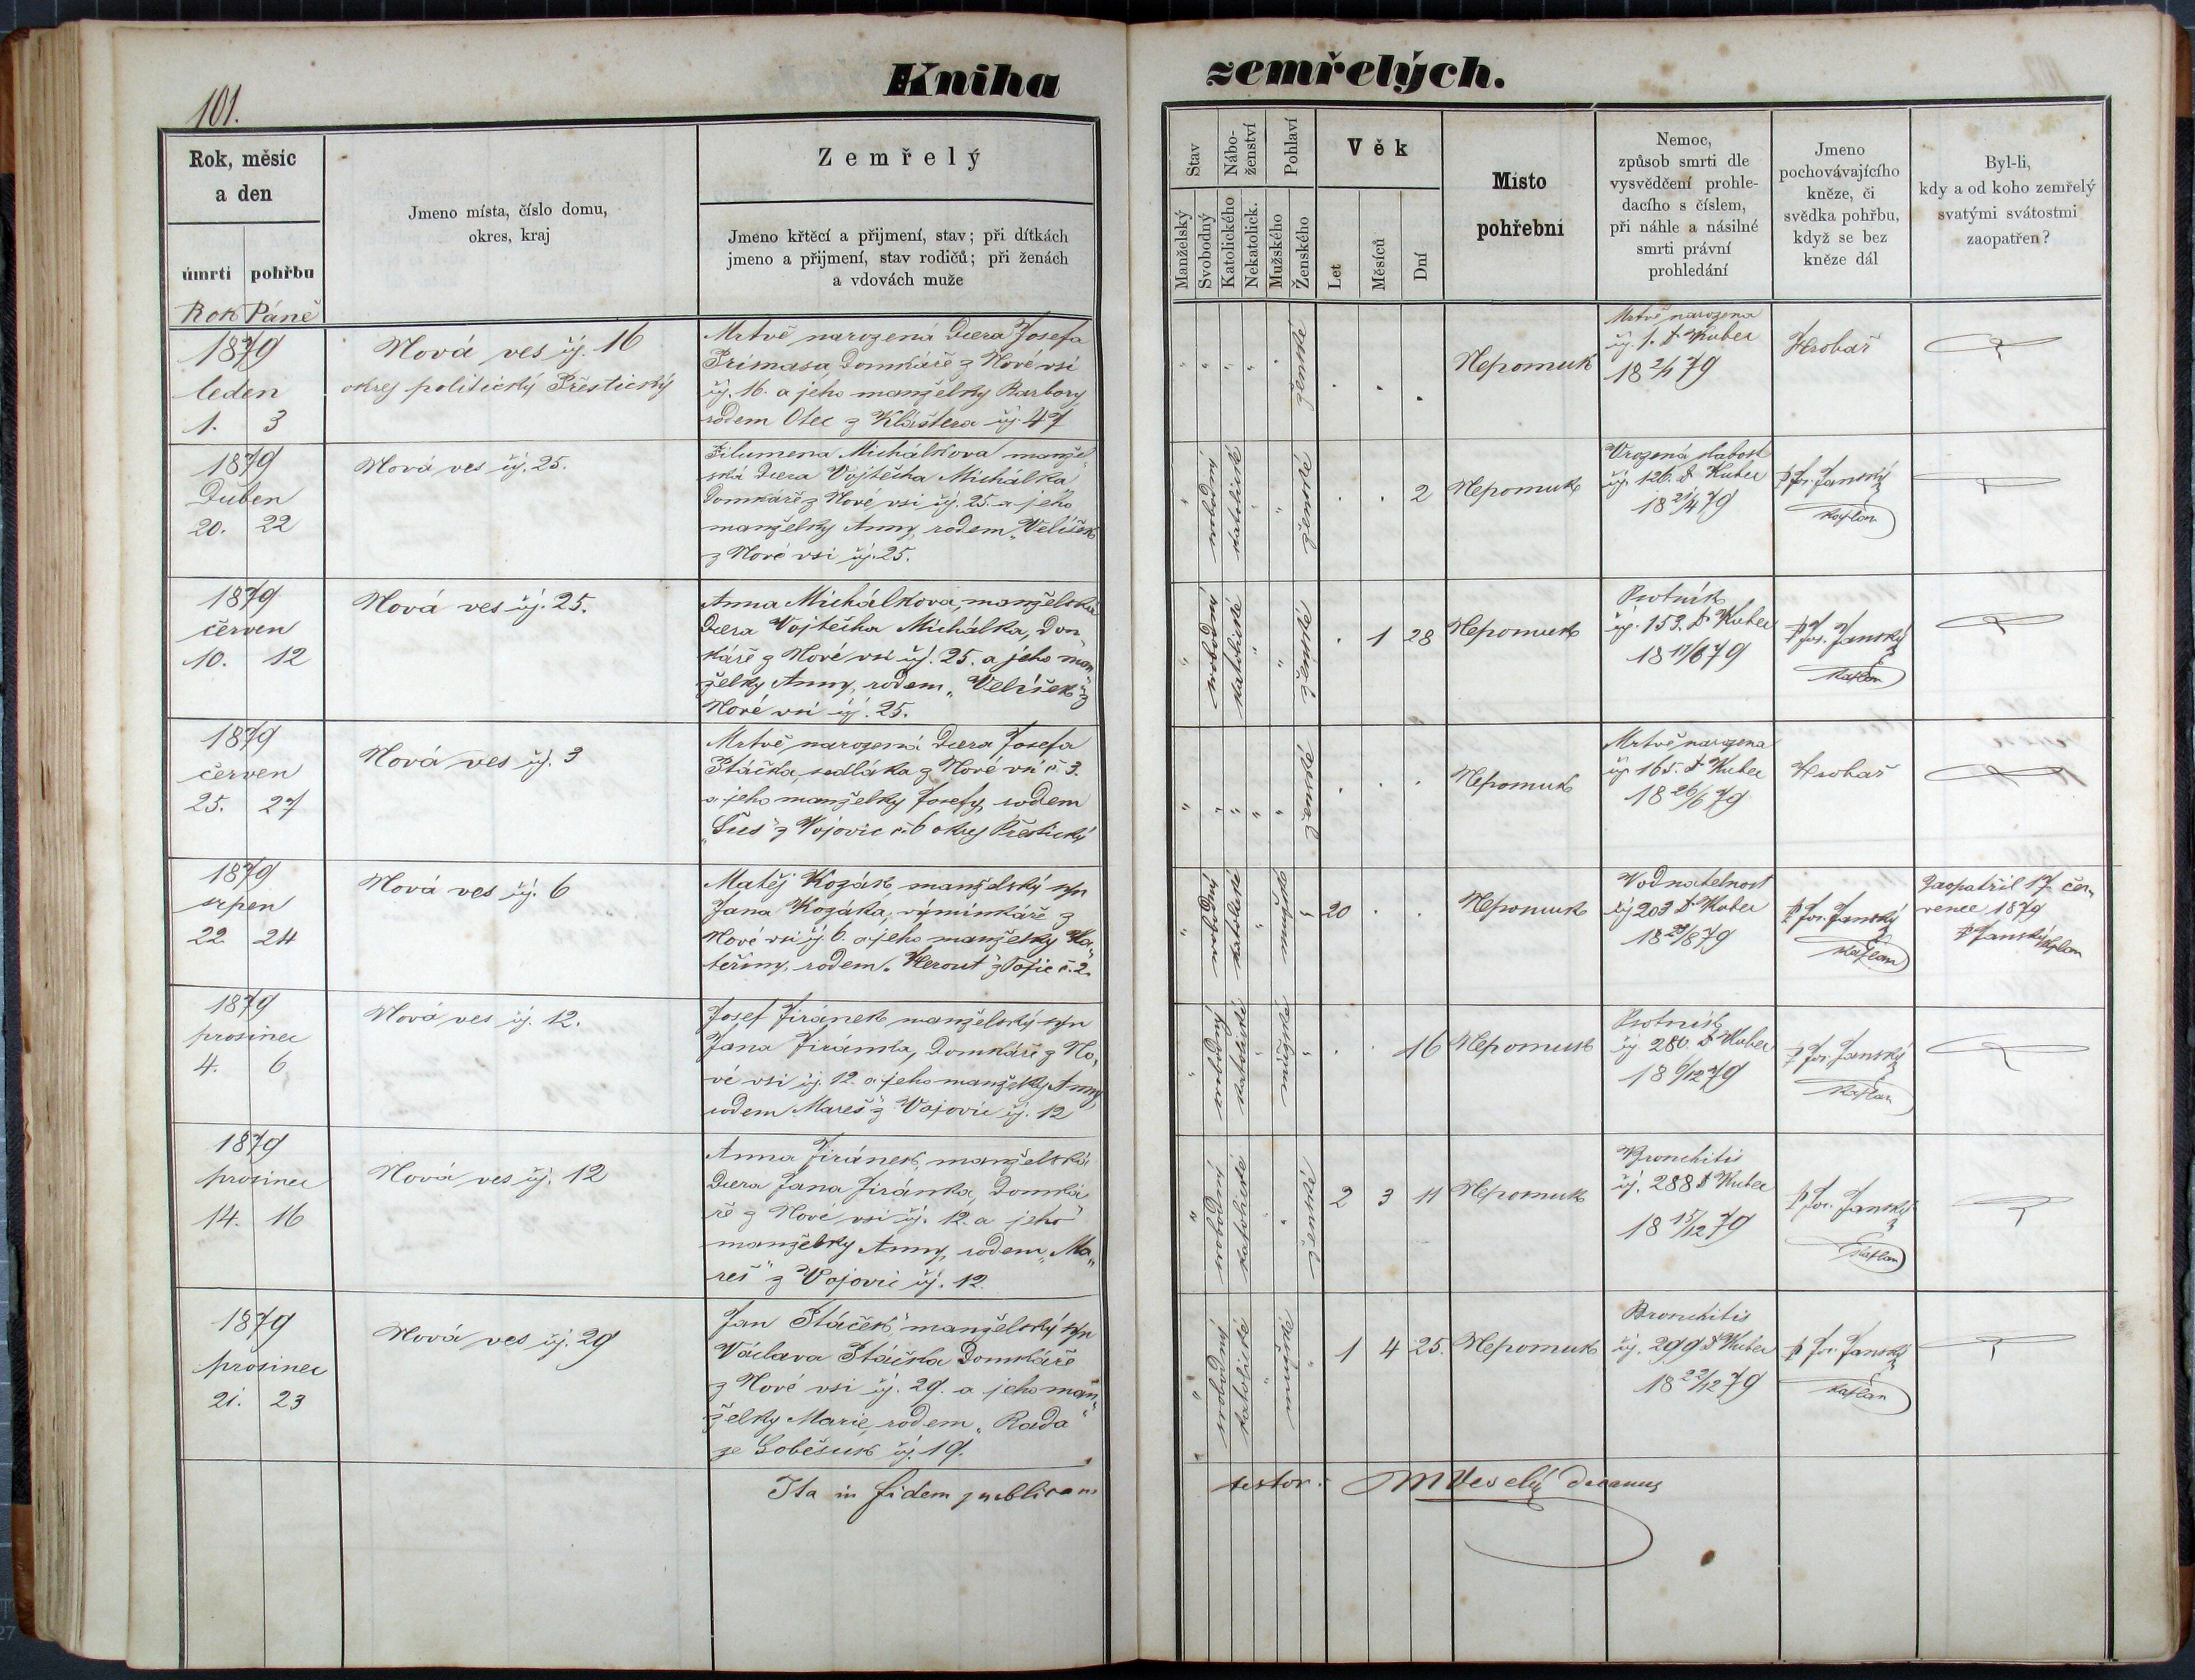 Kniha zemřelých.
101.
Rok, měsíc
a den
úmrtí pohřbu
Jmeno místa, číslo domu,
okres, kraj
Zemřelý
Jmeno křtěcí a přijmení, stav; při dítkách
jmeno a přijmení, stav rodičů; při ženách
a vdovách muže
Stav
Manželský
Svobodný
Náboženství
Katolického
Nekatolick.
Pohlaví
Mužského
Ženského
Věk
Let
Měsíců
Dní
Místo
pohřební
Nemoc,
způsob smrti dle
vysvědčení prohle-
dacího s číslem,
při náhle a násilné
smrti právní
prohledání
Jmeno
pochovávajícího
kněze, či
svědka pohřbu,
když se bez
kněze dál
Byl-li,
kdy a od koho zemřelý
svatými svátostmi
zaopatřen?
Rok Páně
1879
leden
1. 3
Nová ves čj. 16
okres politický Přestický
Mrtvě narozená dcera Josefa
Primasa domkáře z Nové vsi
čj. 16. a jeho manželky Barbory
rodem Otec z Kláštera čj. 47
ženské
Nepomuk
Mrtvě narozena
čj. 1. Dr Huber
18 2/1 79
Hrobař
1879
Duben
20. 22
Nová ves čj. 25.
Filumena Michálkova manžel-
ská dcera Vojtěcha Michálka
domkáře z Nové vsi čj. 25. a jeho
manželky Anny, rodem „Velíšek
z Nové vsi čj. 25.
svobodný katolické ženské
2
Nepomuk
Vrozená slabost
čj. 126. Dr Huber
18 21/4 79
P Jos. Janský
kaplan
1879
červen
10. 12
Nová ves čj. 25.
Anna Michálkova, manželská
dcera Vojtěcha Michálka, dom-
káře z Nové vsi čj. 25. a jeho man-
želky Anny, rodem „Velíšek" z
Nové vsi čj. 25.
svobodný katolické ženské
1 28
Nepomuk
Psotník
čj. 153. Dr Huber
18 11/6 79
P Jos. Janský
kaplan
1879
červen
25. 27
Nová ves čj. 3
Mrtvě narozená dcera Josefa
Ptáčka sedláka z Nové vsi č. 3.
a jeho manželky Josefy, rodem
z Vojovic č. 6 okres Přestický
ženské
Nepomuk
Mrtvě narozena
čj. 165. Dr Huber
18 26/6 79
Hrobař
1879
srpen
22 24
Nová ves čj. 6
Matěj Kozák, manželský syn
Jana Kozáka, výminkáře z
Nové vsi čj. 6. a jeho manželky Ka-
teřiny, rodem „Herout" z č. 2.
svobodný katolické mužské
20
Nepomuk
Vodnatelnost
čj 203 Dr Huber
18 23/8 79
P Jos. Janský
kaplan
Zaopatřil 17. čer-
vence 1879
P Janský kaplan
1879
prosinec
4. 6
Nová ves čj. 12.
Josef Jiránek manželský syn
Jana Jiránka, domkáře z No-
vé vsi čj. 12. a jeho manželky Anny
rodem Mareš z Vojovic čj. 12
svobodný katolické mužské
16
Nepomuk
Psotník
čj. 280. Dr Huber
18 6/12 79
P Jos. Janský
kaplan
1879
prosinec
14. 16
Nová ves čj. 12
Anna Jiránek, manželská
dcera Jana Jiránka, domká-
ře z Nové vsi čj. 12. a jeho
manželky Anny, rodem „Ma-
reš" z Vojovic čj. 12.
svobodný katolické ženské
2 3 11
Nepomuk
Bronchitis
čj. 288 Dr Huber
18 15/12 79
P Jos. Janský
kaplan
1879
prosinec
21. 23
Nová ves čj. 29
Jan Ptáček, manželský syn
Václava Ptáčka domkáře
z Nové vsi čj. 29. a jeho man-
želky Marie, rodem „Rada"
ze Soběsuk čj. 19.
svobodný katolické mužské
1 4 25.
Nepomuk
Bronchitis
čj. 299 Dr Huber
18 22/12 79
P Jos. Janský
kaplan
Ita in fidem publicam testor: M Veselý decanus